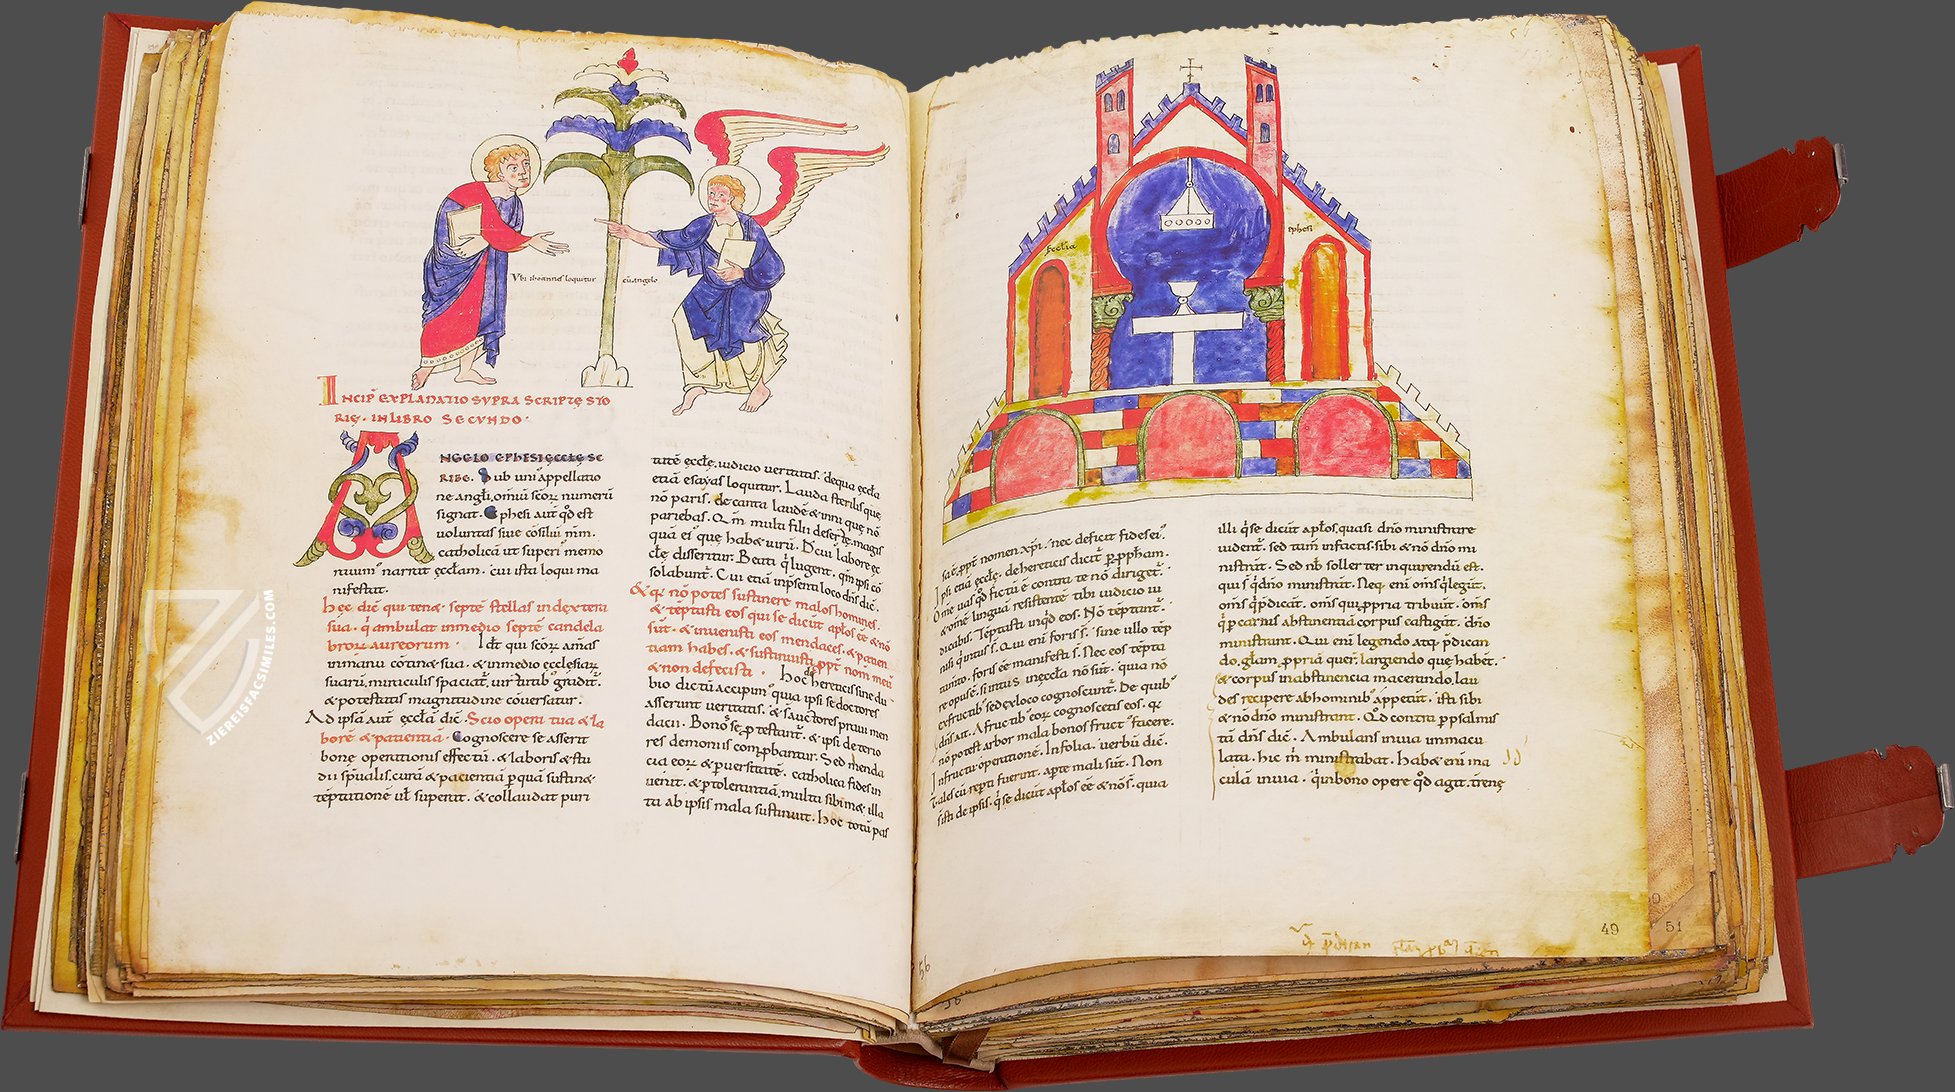 Vbi iohannes loquitur cũ angelo
INCIP̃ EXPLANATIO SVPRA SCRIPTĘ STO
RIĘ · IN LIBRO SECVNDO ·
ANGELO EPHESI ĘCCLĘ SC
RIBE · Sub uni appellatio
ne angli omniũ scõꝝ numerũ
signat. Ephesi aut̃ qd̃ est
uoluntas siue cõsiliũ
catholicã ut superi memo
ntium narrat ęccłam. cui ista loqui ma
nifestat.
hęc dic̃ qui tenæ septẽ stellas in dextera
sua. q̃ ambulat in medio septẽ candela
broꝝ aureorum · Id̃ qui scõꝝ aĩas
in manu cõtinæ sua. & in medio ęcclesiaꝝ
suarũ & potestatis magnitudine cõuersatur.
Ad ipsã aut̃ ęccłã dic̃. Scio opera tua & la
borẽ & patientiã. Cognoscere se asserit
bonę operationis effectũ. & laboris & stu
dii sp̃ualis curã & pacientiã p quã sustinæ
tẽptationẽ uł superat. & collaudat puri
tatẽ ęccłę. iudicio ueritatis. de qua ęccła
etiã esayas loquitur. Lauda sterilis quę
nõ paris. decanta laudẽ & inni quę nõ
pariebas. Qm̃ multi filii desertę. magis
quã ei quę habæ uirũ. labore ęc
clę disseritur. Beati q̃ lugent. qm̃ ipsi cõ
solabunt̃. Cui etiã in psenti loco dñs dic̃.
& q̃ nõ potes sustinere malos homines.
& tẽptasti eos qui se dicũt apłos ẽe & nõ
sũt. & inuenisti eos mendaces. & pacien
tiam habes. & sustinuisti ppt̃ nom̃ meũ
& non defecisti. hoc de hereticis sine du
bio dictũ accipim̃ quia ipsi se doctores
asserunt ueritatis. & s̃ auctores praui men
dacii. Bonos se ptestant̃. & ipsi deterio
res demonus conpbantur. Sed menda
cia eoꝝ & puersitatẽ. catholica fides in
uenit. & p tolerantiã multa sibi mæ illa
ta ab ipsis mala sustinuit. hoc totũ pas
ecclesia ephesi
sa ẽ. ppt̃ nomen xp̃i. nec deficit fides ei.
Ipsi etiã ęccłę. de hereticis dicit̃ p ppħam.
Om̃e uas qd̃ fictũ ẽ contra te nõ diriget̃.
& om̃ẽ lingua resistentẽ tibi iudicio iu
dicabis. Tẽptasti inqd̃ eos. Nõ tẽptant̃.
nisi q̃ intus s̃. Qui eni foris s̃. sine ullo tẽp
foris ẽe manifesti s̃. Nec eos tẽpta
re opus ẽ. si intus in ęccła nõ sũt. quia nõ
ex fructib; sed ex loco cognoscunt̃. De quib;
dñs ait. A fructib; eoꝝ cognoscetis eos. q̃
nõ potest arbor mala bonos fruct; facere.
In folia. uerbũ dic̃.
In fructu operationẽ. Infolia. uerbũ dic̃.
Tales cũ repti fuerint. apte mali sũt. Non
sisti de ipsis. q̃ se dicũt apłos ẽe & nõ s̃. quia
illi q̃ se dicũt apłos. quasi dño ministrare
uident̃. sed tam̃ in factis. sibi & nõ dño mi
nistrãt. Sed nõ soller ter inquirendũ est.
qui s̃ q̃ dño ministrãt. Neq; eni om̃s q̃ legũt.
om̃s q̃ p̃dicãt. om̃s qui ppria tribuũt. om̃s
q̃ p carnis abstinentiã corpus castigãt. dño
ministrant. Qui eni legendo atq; p̃dican
do. głam ppriã querĩt. largiendo quę habẽt.
& corpus in abstinentia macerando. lau
des recipere ab hominib; appetũt. isti sibi
& nõ dño ministrant. Qd̃ contra p psalmis
tã dñs dic̃. Ambulans in uia immacu
lata. hic m̃ ministrabat. Habæ eni ma
culã in uia. q̃ in bono opere qd̃ agit. trenę
49
51
56
ZIEREISFACSIMILES.COM